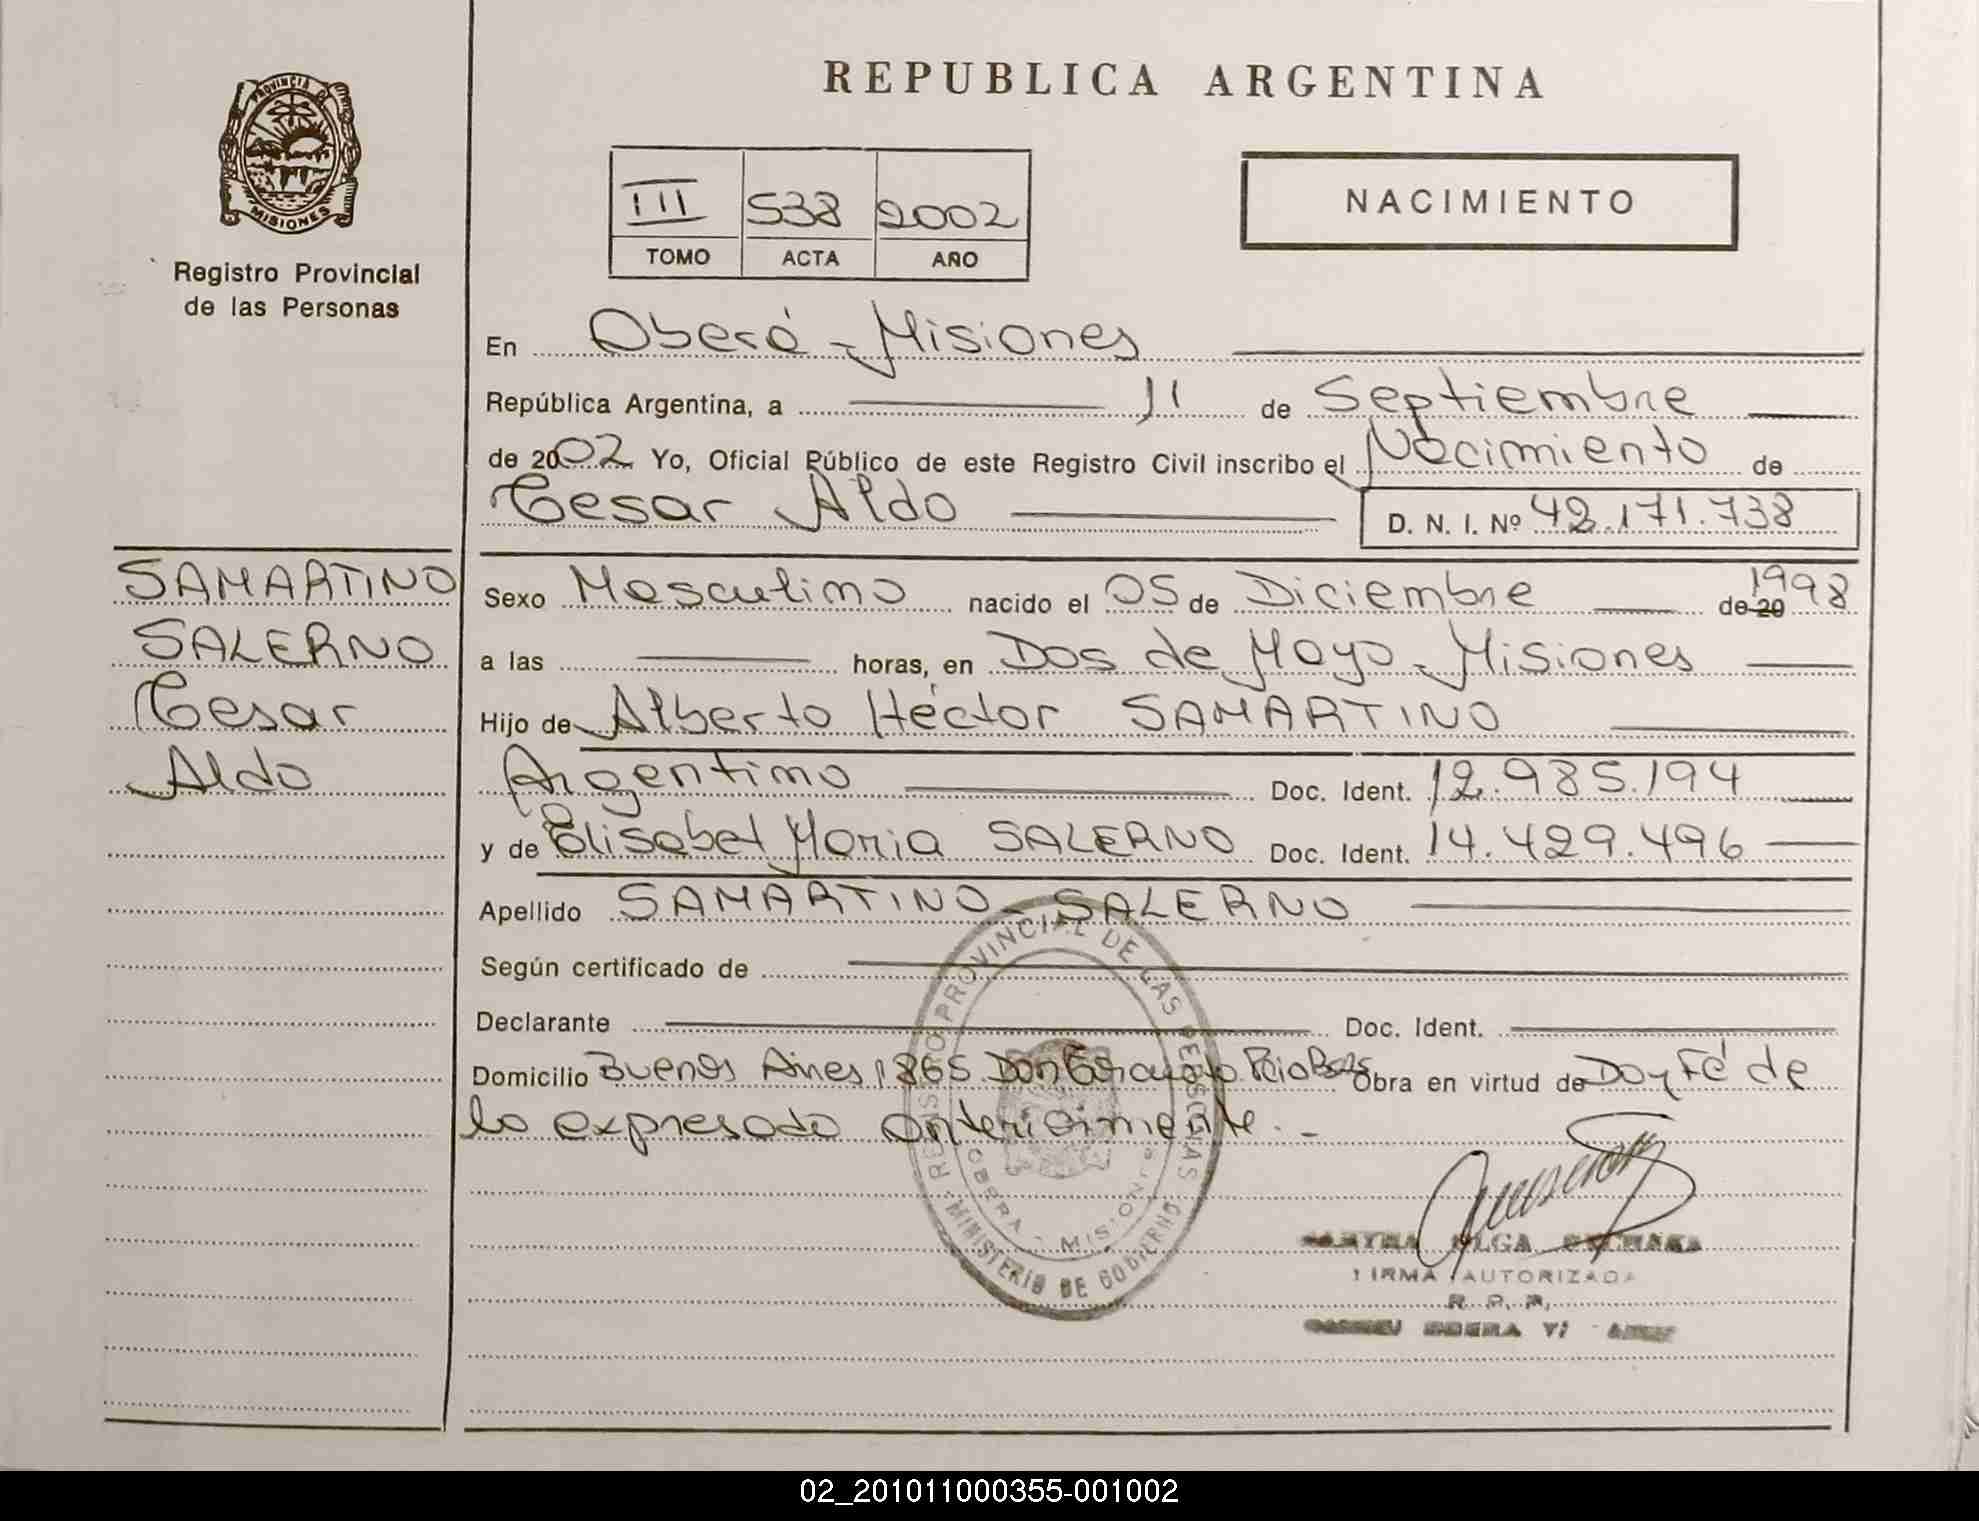 PROVINCIA DE
MISIONES
Registro Provincial
de las Personas
SAMARTINO
SALERNO
Cesar
Aldo
REPUBLICA ARGENTINA
III 538 2002
TOMO ACTA AÑO
NACIMIENTO
En Oberá - Misiones
República Argentina, a 11 de Septiembre
de 2002 Yo, Oficial Público de este Registro Civil inscribo el Nacimiento de
Cesar Aldo D. N. I. Nº 42.171.738
Sexo Masculino nacido el 05 de Diciembre de 20 1998
a las horas, en Dos de Mayo - Misiones
Hijo de Alberto Héctor SAMARTINO
Argentino Doc. Ident. 12.985.194
y de Elisabet Maria SALERNO Doc. Ident. 14.429.496
Apellido SAMARTINO - SALERNO
Según certificado de
Declarante Doc. Ident.
Domicilio Buenos Aires 1865 Don Obra en virtud de Doy Fé de
lo expresado anteriormente. -
REGISTRO PROVINCIAL DE LAS PERSONAS
OBERA - MISIONES
MINISTERIO DE GOBIERNO
OLGA
FIRMA AUTORIZADA
R. P. P.
OBERA
02_201011000355-001002